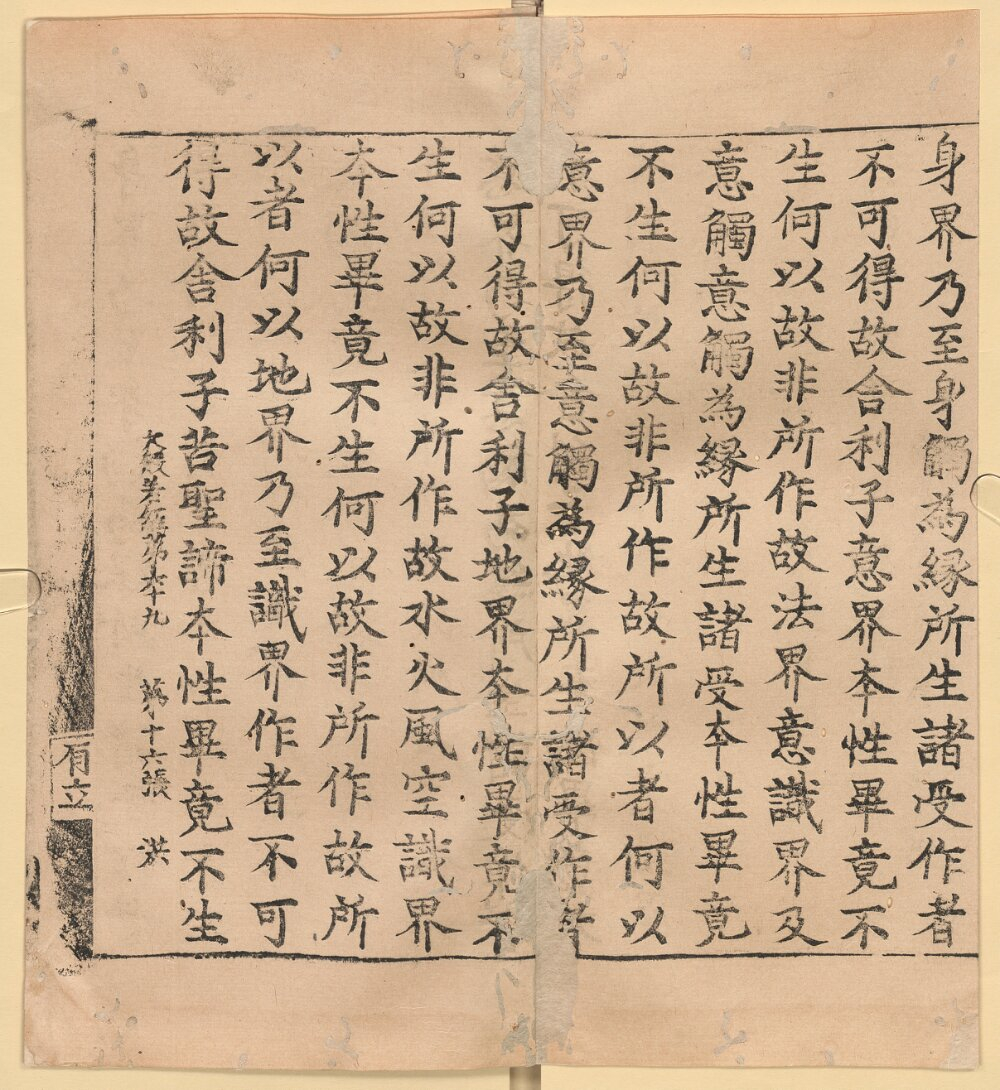 身界乃至身觸為縁所生諸受作者
不可得故舍利子意界本性畢竟不
生何以故非所作故法界意識界及
意觸意觸為縁所生諸受本性畢竟
不生何以故非所作故所以者何以
意界乃至意觸為縁所生諸受作者
不可得故舍利子地界本性畢竟不
生何以故非所作故水火風空識界
本性畢竟不生何以故非所作故所
以者何以地界乃至識界作者不可
得故舍利子苦聖諦本性畢竟不生
大般若經第六十九 第十六張 洪